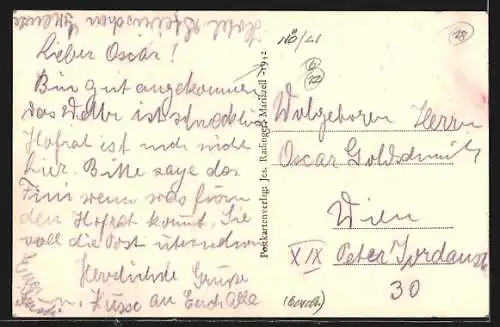 Lieber Oscar!
Bin gut angekommen
das Wetter ist schrecklich
Hofrat ist noch nicht
hier. Bitte sage der
Fini wenn was für
den Hofrat kommt, Sie
soll die Post
Herzlichste Grüsse
u. Küsse an Euch Alle
Postkartenverlag: Jos. Radinger, Mariazell - 1932
NÖ/21
18
Wolgeboren Herrn
Oscar Goldschmidt
Wien
XIX Peter Jordanst
30